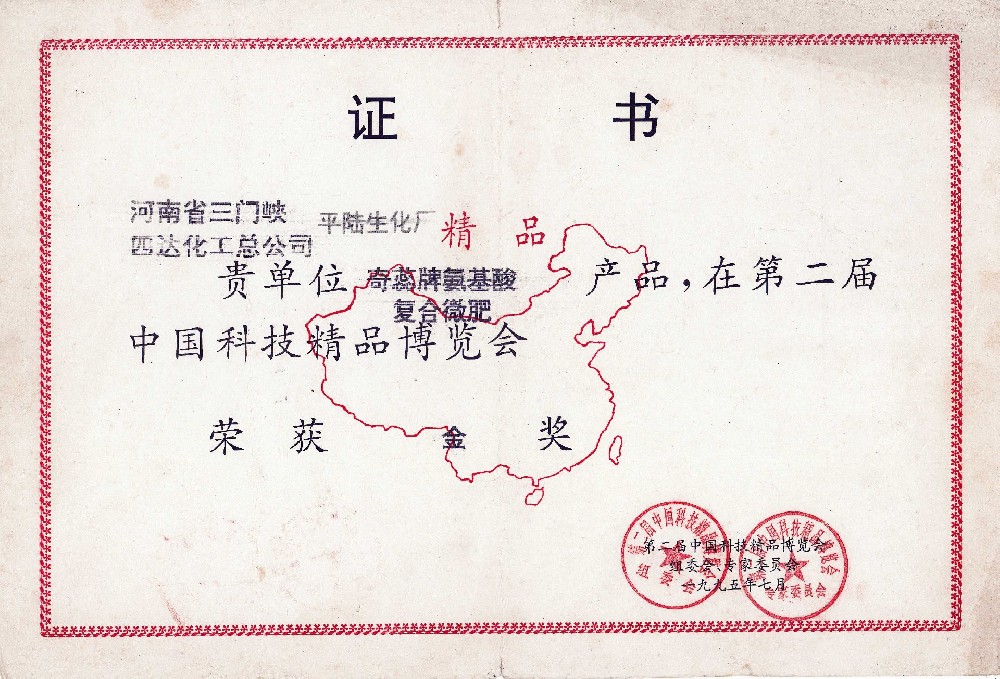 证 书
河南省三门峡
四达化工总公司 平陆生化厂
精 品
贵单位 奇蕊牌氨基酸 产品，在第二届
复合微肥
中国科技精品博览会
荣 获 金 奖
第二届中国科技精品博览会
组委会、专家委员会
一九九五年七月
第二届中国科技精品博览会
组委会
第二届中国科技精品博览会
专家委员会